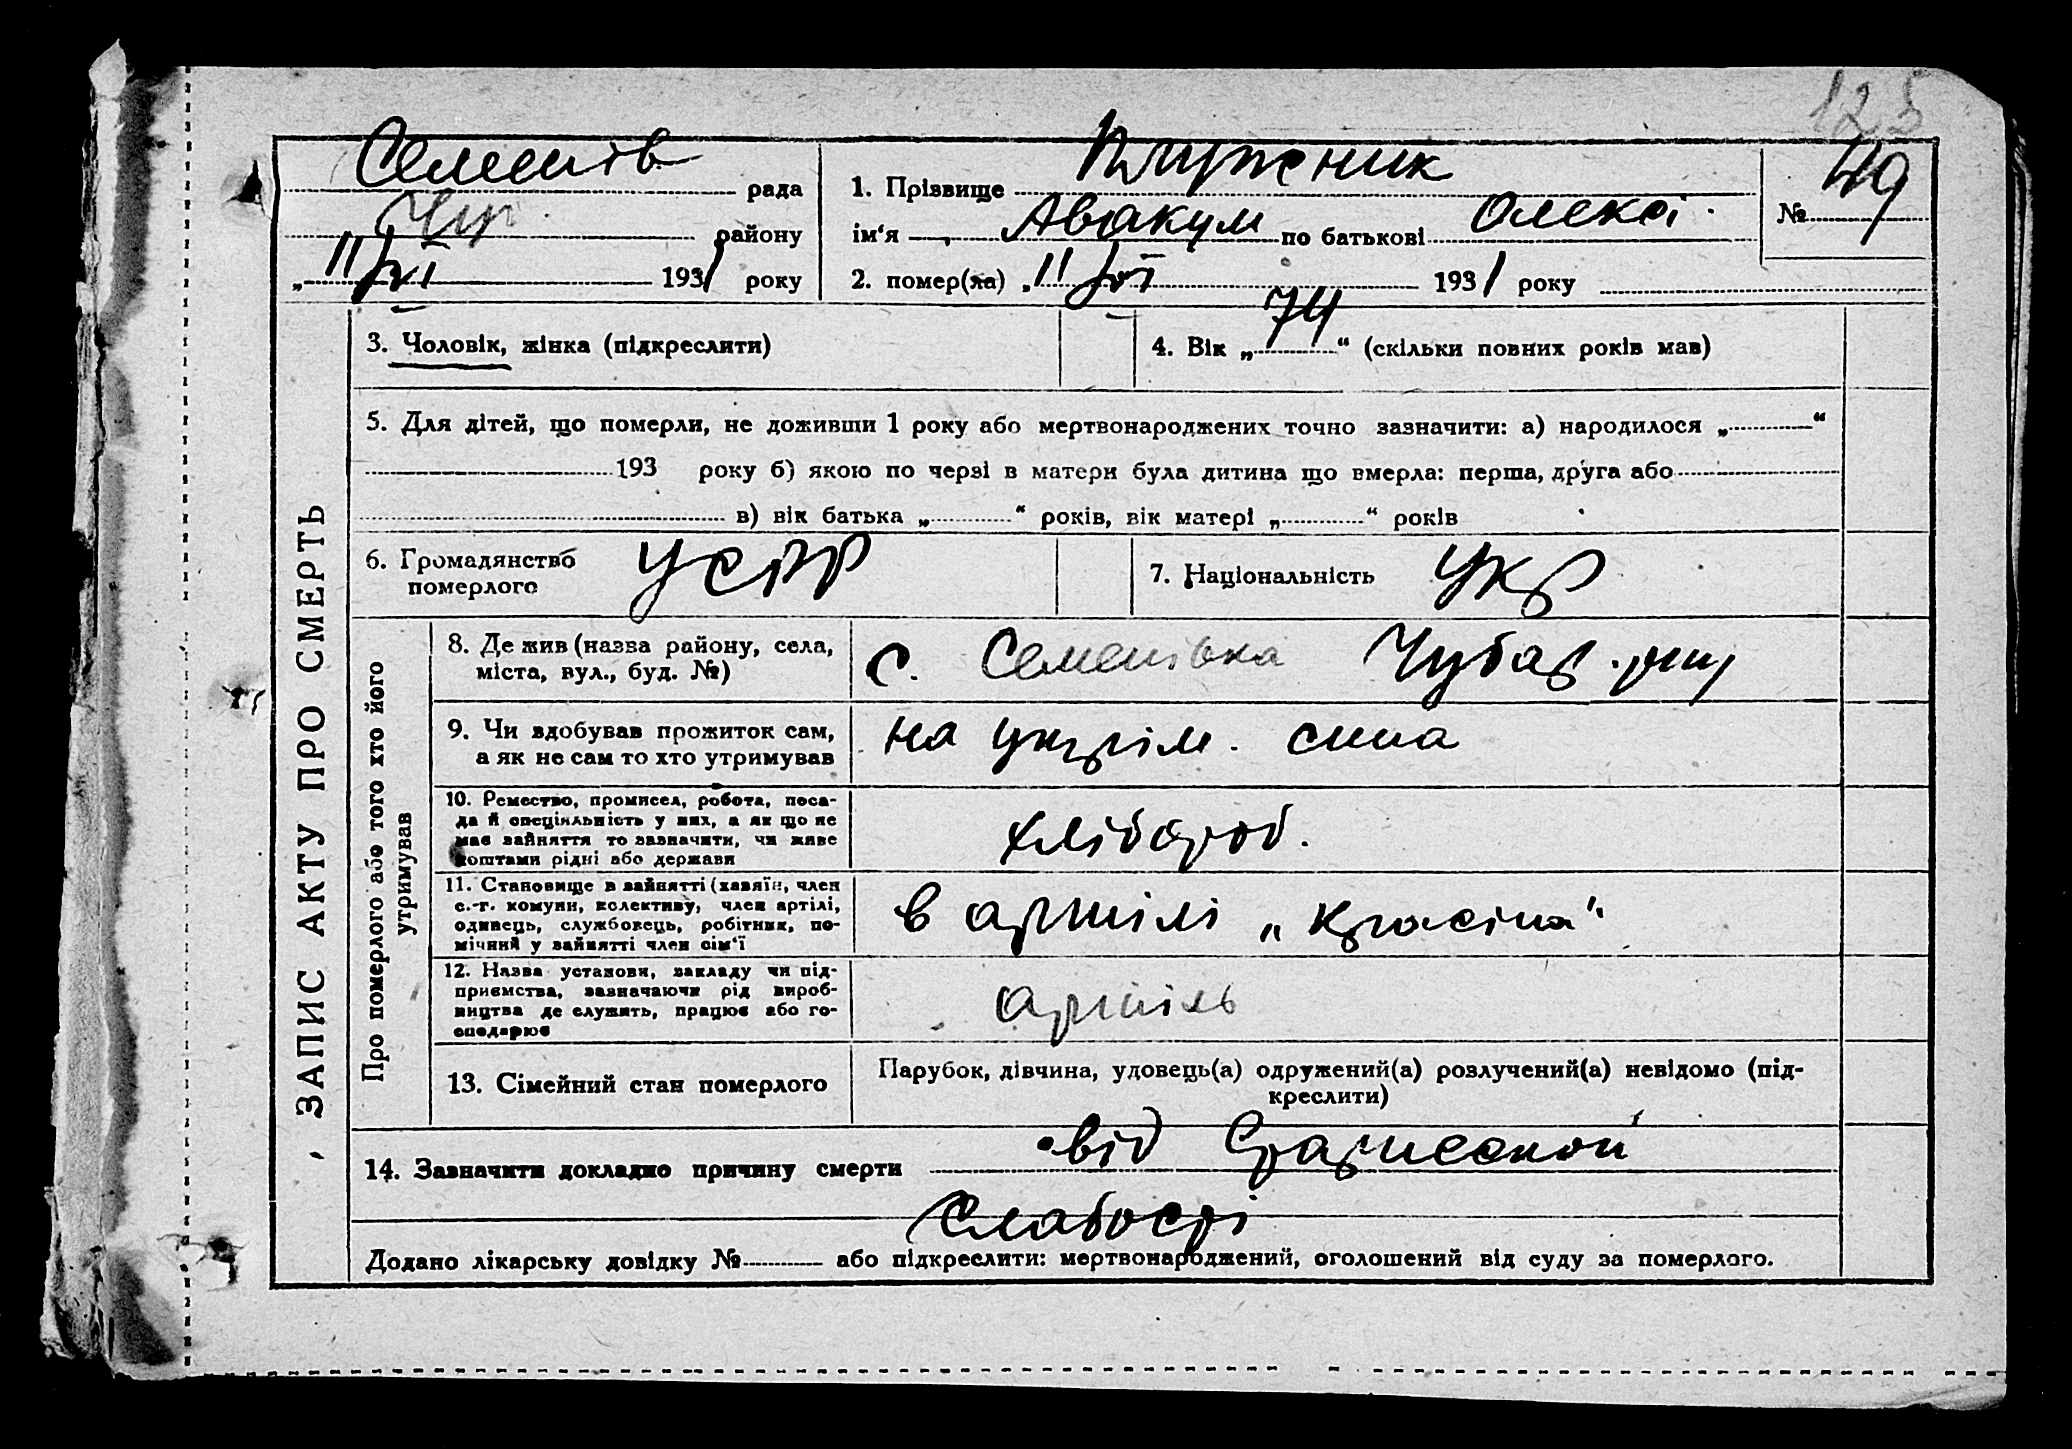 125
Семенів рада
Чуб району
"11/VI 1931 року
1. Прізвище Плужник
ім'я Авакум по батькові Олексі.
2. помер(ла) "11/VI 1931 року
№ 49
ЗАПИС АКТУ ПРО СМЕРТЬ
3. Чоловік, жінка (підкреслити)
4. Вік „74“ (скільки повних років мав)
5. Для дітей, що померли, не доживши 1 року або мертвонароджених точно зазначити: а) народилося „ “
193 року б) якою по черзі в матери була дитина що вмерла: перша, друга або
в) вік батька „ “ років, вік матері „ “ років
6. Громадянство
померлого
УСРР
7. Національність Укр
Про померлого або того хто його
утримував
8. Де жив (назва району, села,
міста, вул., буд. №)
с. Семенівка Чубар.
9. Чи вдобував прожиток сам,
а як не сам то хто утримував
на утрім. сина
10. Ремество, промисел, робота, поса-
да й спеціяльність у них, а як що не
має зайняття то зазначити, чи живе
коштами рідні або держави
хлібороб.
11. Становище в зайнятті (хазяїн, член
с.-г. комуни, колективу, член артілі,
одинець, службовець, робітник, по-
мічний у зайнятті член сім'ї
в артілі „Красіна“
12. Назва установи, закладу чи під-
приємства, зазначаючи рід вироб-
ництва де служить, працює або го-
сподарює
артіль
13. Сімейний стан померлого
Парубок, дівчина, удовець(а) одружений(а) розлучений(а) невідомо (під-
креслити)
14. Зазначити докладно причину смерти від старческой
слабості
Додано лікарську довідку № або підкреслити: мертвонароджений, оголошений від суду за померлого.